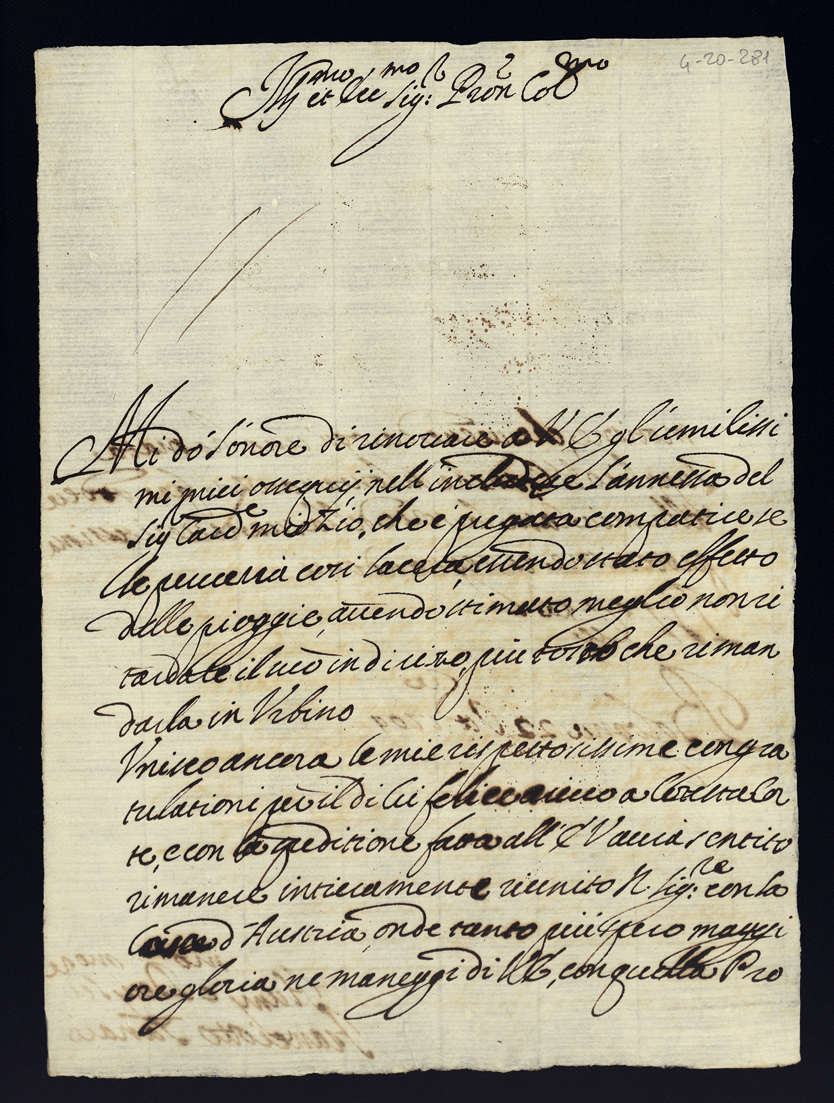 4-20-281
Ill.mo et Ecc.mo Sig.r Pron Col.mo
Mi dò l'onore di rinovare a V E gl'umilissi
mi miei ossequij nell'includerle l'annessa del
Sig Card.e mio Zio, che è pregata compatire se
le perverrà così lacera, essendo stato effetto
delle pioggie, avendo stimato meglio non ri
tardare il suo indirizzo, più tosto che riman
darla in Urbino
Unisco ancora le mie rispettosissime congra
tulationi per il di lei felice arrivo a cotesta Cor
te, e con la speditione fatta all' E V avrà sentito
rimanere intieramente riunito N Sig.re con la
Casa d'Austria, onde tanto più spero maggi
ore gloria ne maneggi di V E, con quella Pro